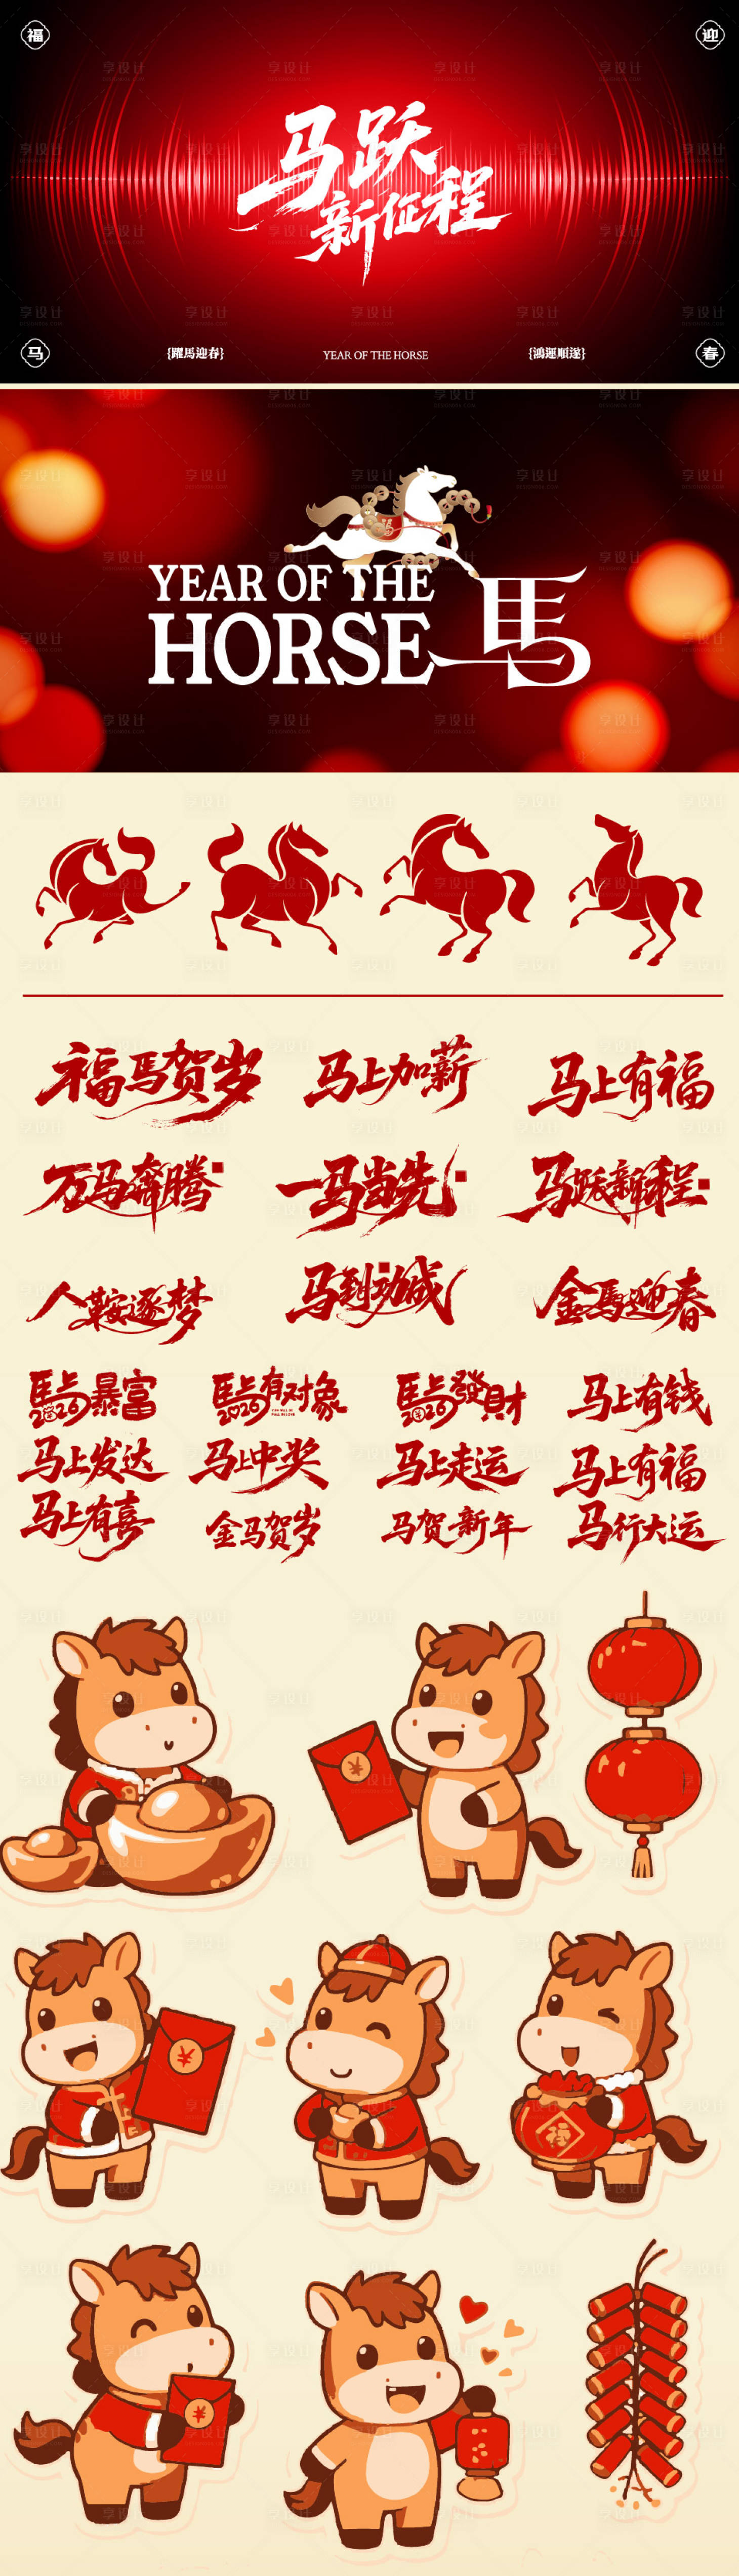 福
迎
马跃
新征程
马
{躍馬迎春}
YEAR OF THE HORSE
{鴻運順遂}
春
YEAR OF THE
HORSE 馬
福馬贺岁
马上加薪
马上有福
万马奔腾
一马当先
马跃新征程
人鞍逐梦
马到功成
金馬迎春
馬上暴富
2026
馬上有对象
2026
馬上發財
2026
马上有钱
马上发达
马上中奖
马上走运
马上有福
马上有喜
金马贺岁
马贺新年
马行大运
¥
¥
福
¥
享设计
DESIGN006.COM